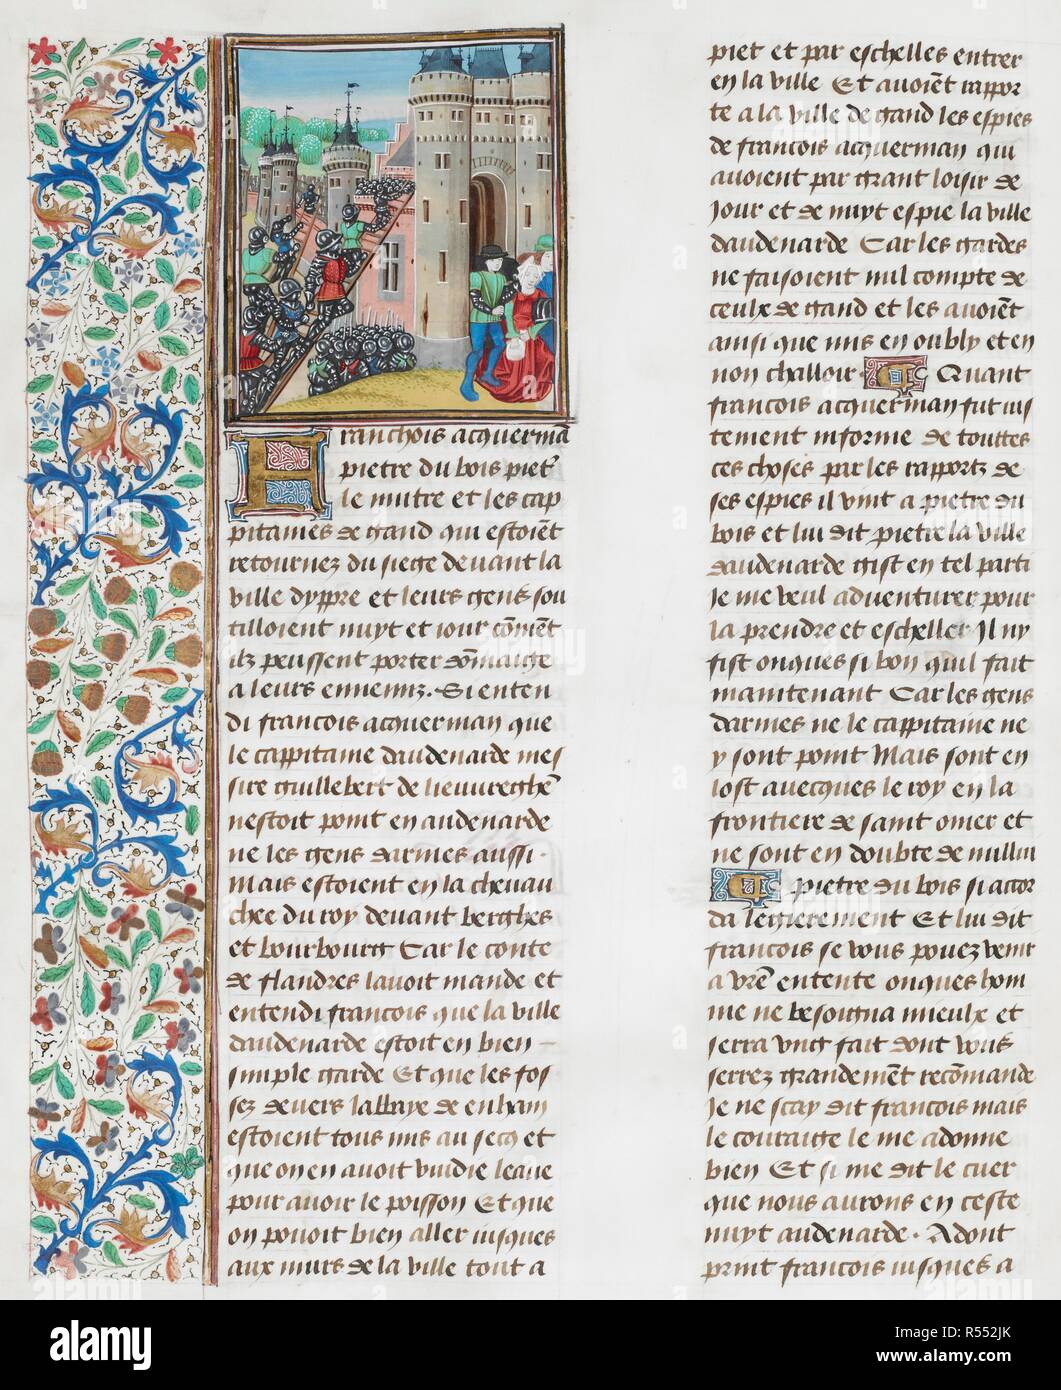 Franchois acquermā
pietre du bois piet'
le mitre et les cap
pitaines de gand qui estoiēt
retournez du siege devant la
ville dyppre et leurs gens sou
tilloient nuyt et iour cōment
ilz peussent porter dōmaige
a leurs ennemiz. Si enten
di francois acquerman que
le cappitaine daudenarde mes
sire guillebert de lieuureghē
nestoit point en audenarde
ne les gens darmes aussi.
Mais estoient en la chevau
chee du roy devant berghes
et bourbourg Car le conte
de flandres lavoit mande et
entendi francois que la ville
daudenarde estoit en bien
simple garde Et que les fos
sez devers labbaye de enham
estoient tous mis au secq et
que on en avoit vuidie leaue
pour avoir le poisson Et que
on povoit bien aller iusques
aux murs de la ville tout a
piet et par eschelles entrer
en la ville Et avoiēt rappor
te a la ville de gand les espies
de francois acquerman qui
avoient par grant loisir de
Jour et de nuyt espie la ville
daudenarde Car les gardes
ne faisoient nul compte de
ceulx de gand et les avoiēt
ainsi que mis en oubly et en
non challoir. Quant
francois acquerman fut ius
tement informe de touttes
ces choses par les rapportz de
ses espies il vint a pietre du
bois et lui dit pietre la ville
daudenarde gist en tel parti
Je me veul adventurer pour
la prendre et escheller Il ny
fist onques si bon quil fait
maintenant Car les gens
darmes ne le cappitaine ne
y sont point Mais sont en
lost avecques le roy en la
frontiere de saint omer et
ne sont en doubte de nullui
pietre du bois si accor
da legierement Et lui dit
francois se vous povez venir
a vr̄e entente onques hom
me ne besoigna mieulx et
serra ung fait dont vous
serrez grandemēt recōmande
Je ne scay dit francois mais
le couraige le me adonne
bien Et si me dit le cuer
que nous aurons en ceste
nuyt audenarde. Adont
print francois iusques a
alamy
Image ID: R552JK
www.alamy.com